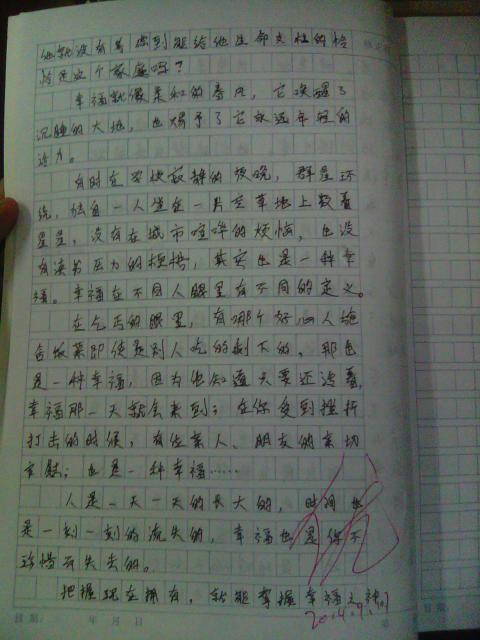 他就没有易感到能给他生命支柱的恰
恰是这个家庭吗？
幸福就像柔和的春风，它唤醒了
沉睡的大地，也赐予了它永远年轻的
活力。
有时在安快寂静的夜晚，群星环
绕，独自一人坐在一片空草地上数着
星星，没有在城市喧哗的烦恼，也没
有读书压力的梗梏，其实也是一种幸
福。幸福在不同人眼里有不同的定义。
在乞丐的眼里，有哪个好心人施
舍饭菜即使是别人吃的剩下的，那也
是一种幸福，因为他知道只要还活着，
幸福那一天就会来到；在你受到挫折
打击的时候，有位亲人、朋友的亲切
安慰；也是一种幸福……
人是一天一天的长大的，时间也
是一刻一刻的流失的，幸福也是你不
珍惜而失去的。
把握现在拥有，就能掌握幸福之神!
日期： 年 月 日